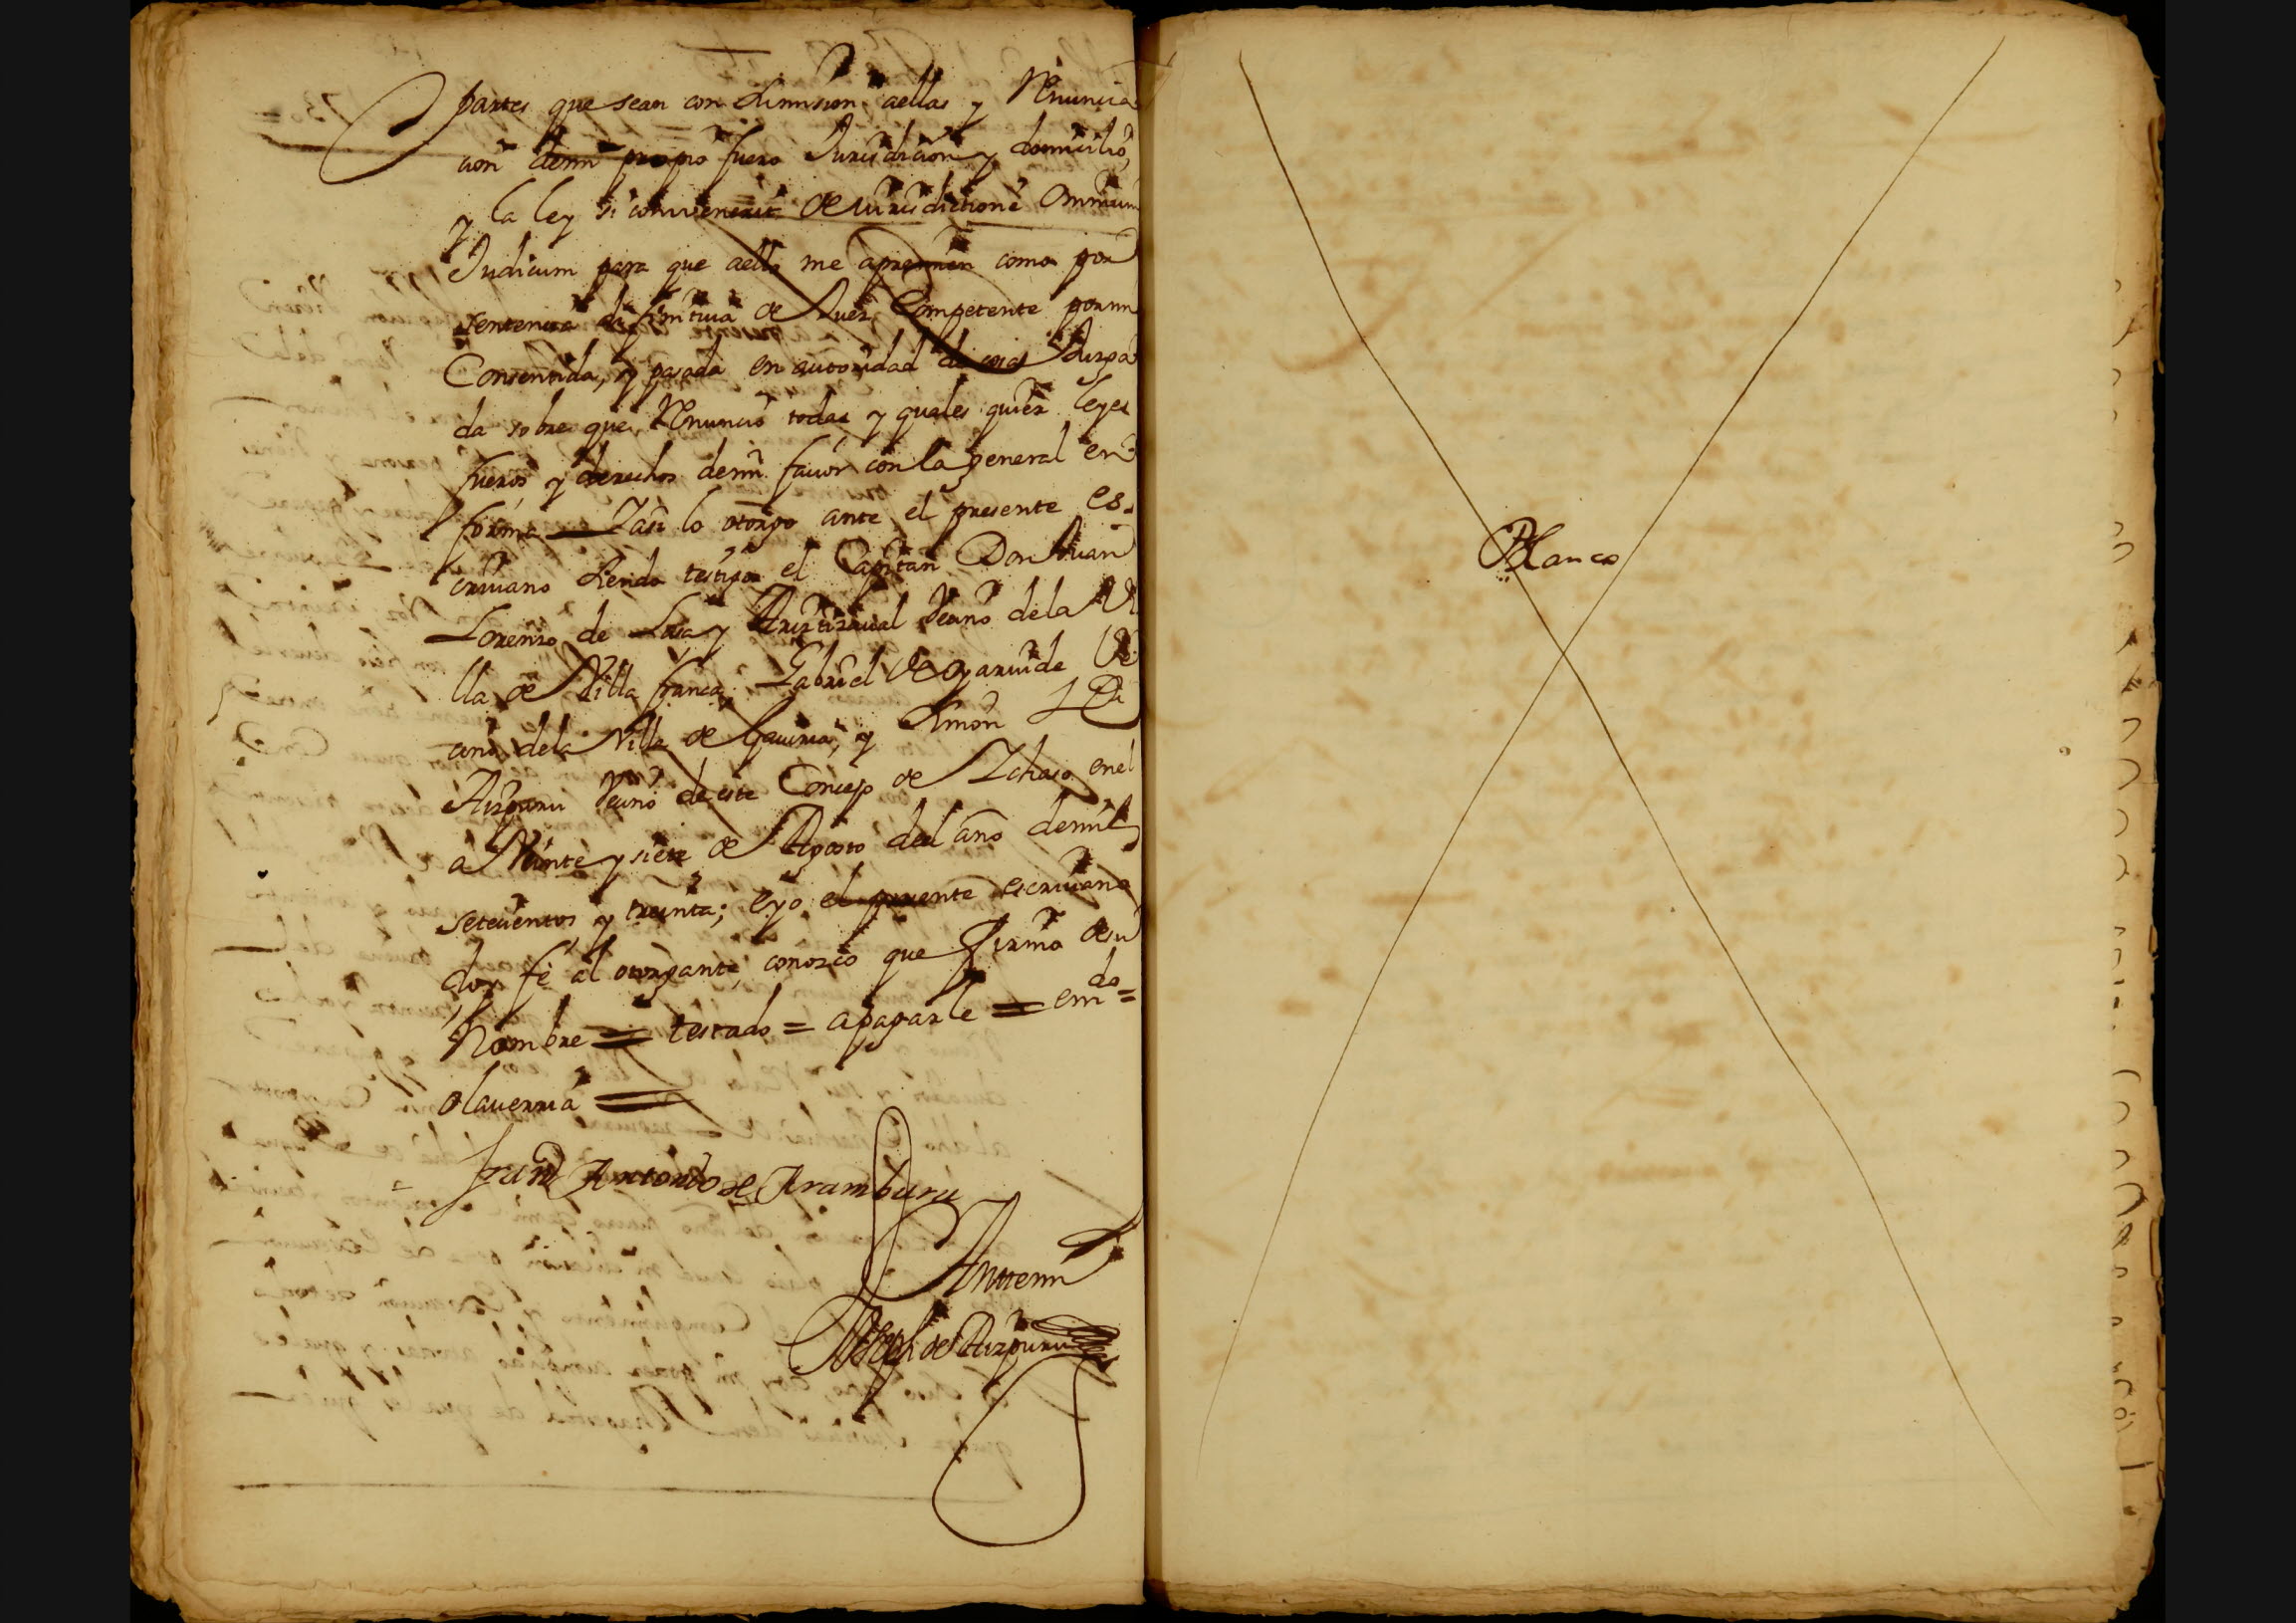 partes que sean con sumision aellas y Renuncia
cion demi propio fuero Jurisdicion y domicilio,
y la ley si convenerit de iurisdictione Omnium
Judicum para que aello me apremien como por
sentencia difinitiua de Juez Competente por mi
Consentida, y pasada en autoridad de cosa Juzga
da sobre que Renuncio todas y quales quier leyes
fueros y derechos demi fauor con la general en
forma Y asi lo otorgo ante el presente es-
criuano siendo testigos el Capitan Don Juan
Lorenzo de Lasa y Arizticaual Vecino dela Vi
lla de Villa franca, Gabriel de Oyaruide Ve
cino dela Villa de Gauiria, y Simon de
Aizpuru Vecino de este Concejo de Ichaso enel
a Veinte y siete de Agosto del año de mil
setecientos y treinta; e yo el presente escriuano
doy fe al otorgante, conozco que firmo de su
Nombre = testado = apagarle = em.do =
olauerria =
Juan Antonio de Aramburu
Antemi
Joseph de Aizpuru
Blanco